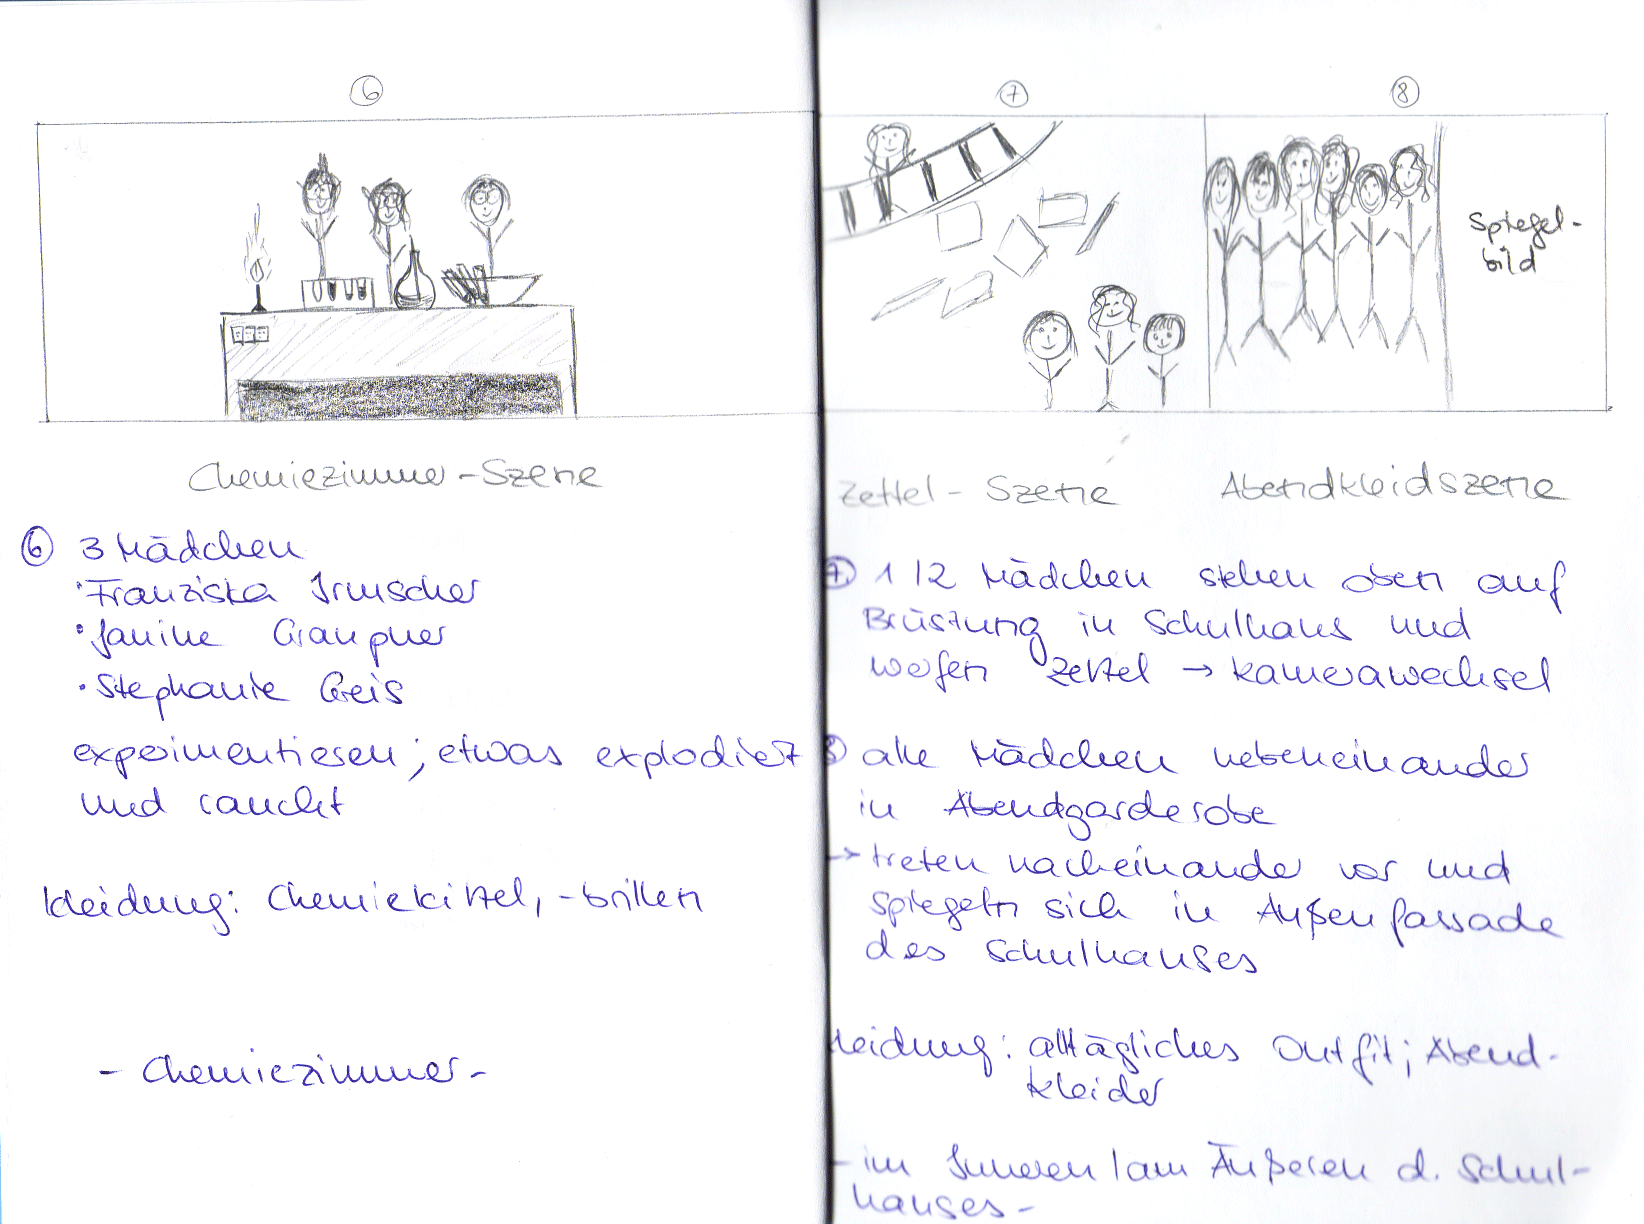 6
Chemiezimmer-Szene
6 3 Mädchen
• Franziska Irmscher
• Janine Graupner
• Stephanie Geis
experimentieren; etwas explodiert
und raucht
Kleidung: Chemiekittel, -brillen
- Chemiezimmer -
7
8
Spiegel-
bild
Zettel-Szene
Abendkleidszene
7 1/2 Mädchen stehen oben auf
Brüstung in Schulhaus und
werfen Zettel → Kamerawechsel
8 alle Mädchen nebeneinander
in Abendgarderobe
→ treten nacheinander vor und
spiegeln sich in Außenfassade
des Schulhauses
Kleidung: alltägliches Outfit; Abend-
kleider
- im Inneren/am Äußeren d. Schul-
hauses -